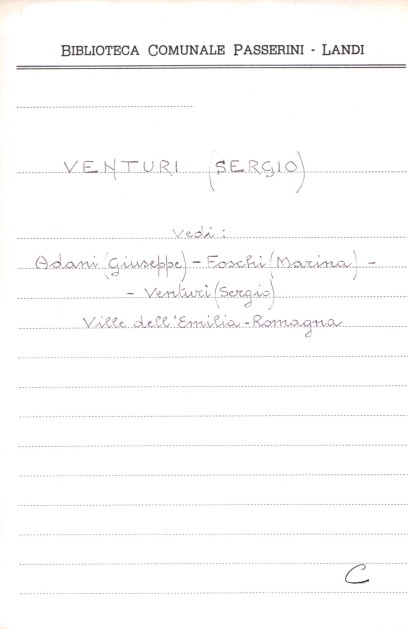 BIBLIOTECA COMUNALE PASSERINI - LANDI
VENTURI (SERGIO)
Vedi:
Adani (Giuseppe) - Foschi (Marina) -
- Venturi (Sergio)
Ville dell'Emilia-Romagna
C